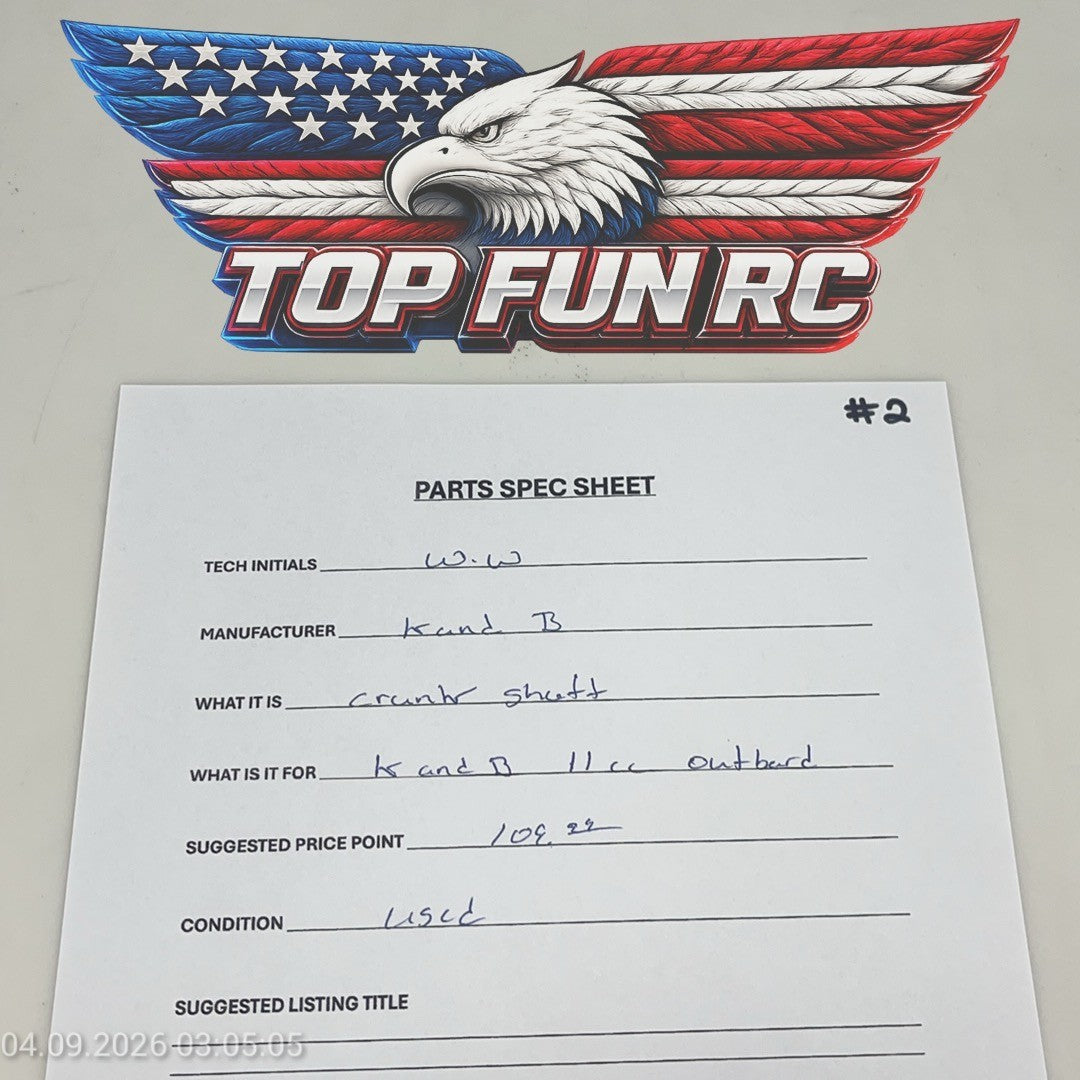 TOP FUN RC
#2
PARTS SPEC SHEET
TECH INITIALS W.W
MANUFACTURER K and B
WHAT IT IS crank shaft
WHAT IS IT FOR K and B 11 cc outbard
SUGGESTED PRICE POINT 109.99
CONDITION used
SUGGESTED LISTING TITLE
04.09.2026 03:05:05